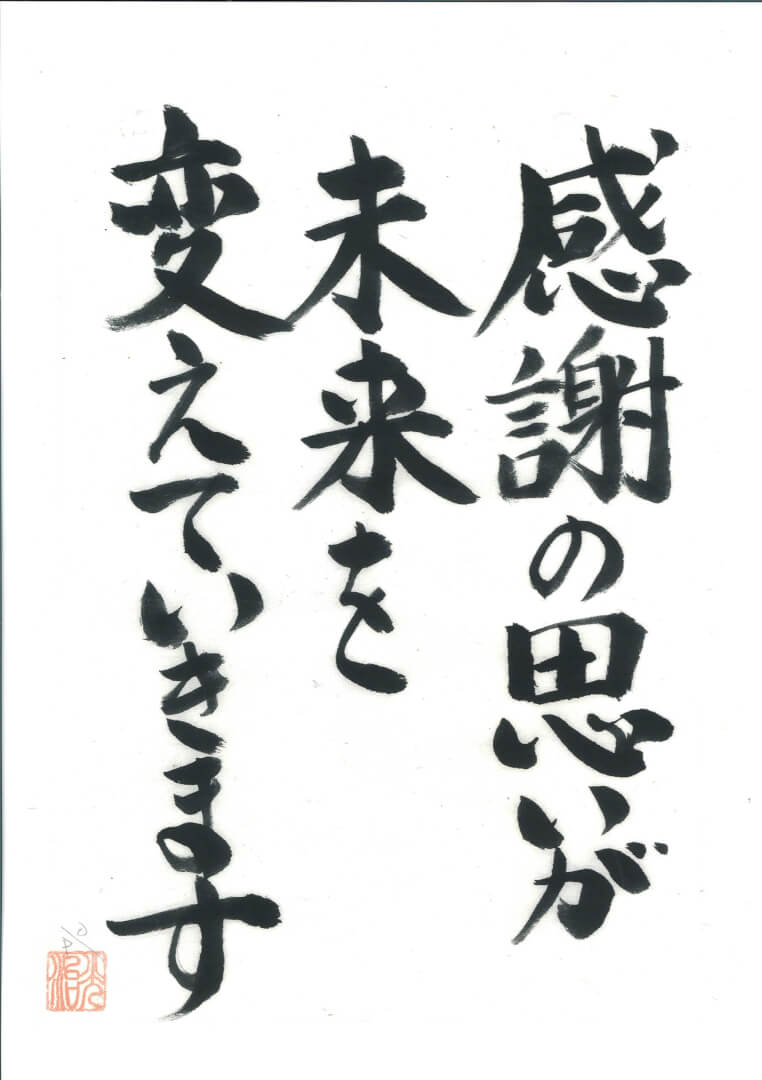 感謝の思いが
未来を
変えていきます